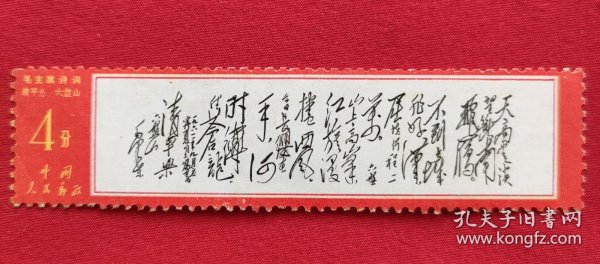 毛主席诗词
清平乐 六盘山
4分
中国
人民邮政
天高云淡
望断南
飞雁
不到长城
非好汉
屈指行程二
万
六盘
山上高峰
红旗漫
卷西风
今日长缨在
手 何
时缚住
苍龙
清平乐
六盘山
毛泽东
孔夫子旧书网
www.kongfz.com